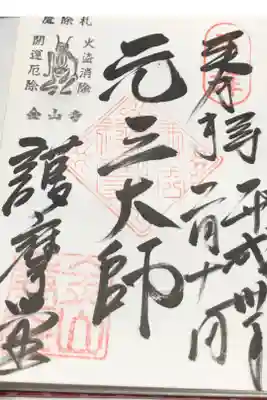 奉拝
平成
二月十
元三大師
護摩堂
魔除札
火盗消除
開運厄除
金山寺